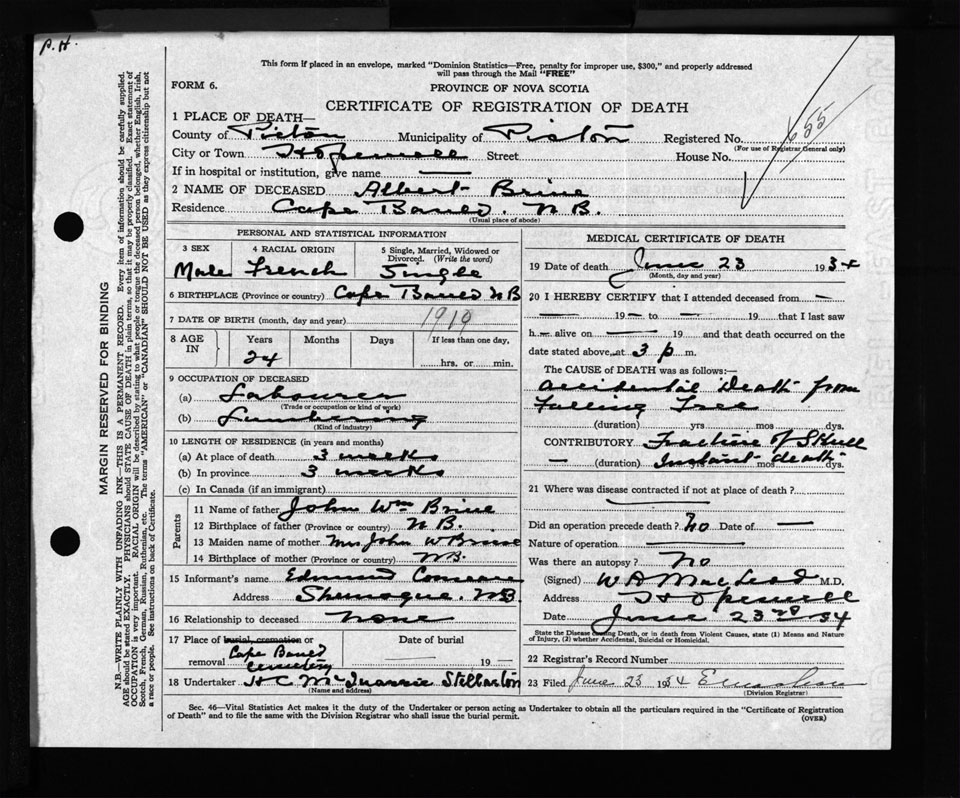 P. H.
This form if placed in an envelope, marked "Dominion Statistics—Free, penalty for improper use, $300," and properly addressed
will pass through the Mail "FREE"
FORM 6.
PROVINCE OF NOVA SCOTIA
CERTIFICATE OF REGISTRATION OF DEATH
1 PLACE OF DEATH—
County of Pictou Municipality of Pictou Registered No. 655
(For use of Registrar General only)
City or Town Hopewell Street House No.
If in hospital or institution, give name —
2 NAME OF DECEASED Albert Brine
Residence Cape N B.
(Usual place of abode)
PERSONAL AND STATISTICAL INFORMATION
3 SEX 4 RACIAL ORIGIN 5 Single, Married, Widowed or
Divorced. (Write the word)
Male French Single
6 BIRTHPLACE (Province or country) Cape N B
7 DATE OF BIRTH (month, day and year) 1910
8 AGE IN Years Months Days If less than one day,
24 hrs. or min.
9 OCCUPATION OF DECEASED
(a) Labourer
(Trade or occupation or kind of work)
(b) Lumbering
(Kind of industry)
10 LENGTH OF RESIDENCE (in years and months)
(a) At place of death 3 weeks
(b) In province 3 weeks
(c) In Canada (if an immigrant)
Parents
11 Name of father John Wm Brine
12 Birthplace of father (Province or country) N B.
13 Maiden name of mother Mrs John W Brine
14 Birthplace of mother (Province or country) N B.
15 Informant's name Edmund
Address Shemogue. N B.
16 Relationship to deceased None
17 Place of burial, cremation or Date of burial
removal Cape Cemetery 19 —
18 Undertaker H C Stellarton
(Name and address)
MEDICAL CERTIFICATE OF DEATH
19 Date of death June 23 1934
(Month, day and year)
20 I HEREBY CERTIFY that I attended deceased from —
— 19 — to — 19 that I last saw
h — alive on — 19 and that death occurred on
date stated above, at 3 p m.
The CAUSE of DEATH was as follows:—
Accidental Death from
Falling Tree
(duration) yrs mos dys.
CONTRIBUTORY Fracture of Skull
— (duration) Instant death yrs mos dys.
21 Where was disease contracted if not at place of death?
Did an operation precede death? No Date of —
Nature of operation —
Was there an autopsy? No
(Signed) W D MacLeod M.D.
Address Hopewell
Date June 23rd 34
State the Disease causing Death, or in death from Violent Causes, state (1) Means and Nature
of Injury, (2) whether Accidental, Suicidal or Homicidal.
22 Registrar's Record Number
23 Filed June 23 1934
(Division Registrar)
Sec. 46—Vital Statistics Act makes it the duty of the Undertaker or person acting as Undertaker to obtain all the particulars required in the "Certificate of Registration
of Death" and to file the same with the Division Registrar who shall issue the burial permit.
(OVER)
MARGIN RESERVED FOR BINDING
N.B.—WRITE PLAINLY WITH UNFADING INK—THIS IS A PERMANENT RECORD. Every item of information should be carefully supplied.
AGE should be stated EXACTLY. PHYSICIANS should STATE CAUSE OF DEATH in plain terms, so that it may be properly classified. Exact statement of
OCCUPATION is very important. RACIAL ORIGIN will be described by stating to what people or tongue the deceased person belonged, whether English, Irish,
Scotch, French, German, Russian, Ruthenian, etc. The terms "AMERICAN" or "CANADIAN" SHOULD NOT BE USED as they express citizenship but not
a race or people. See instructions on back of Certificate.